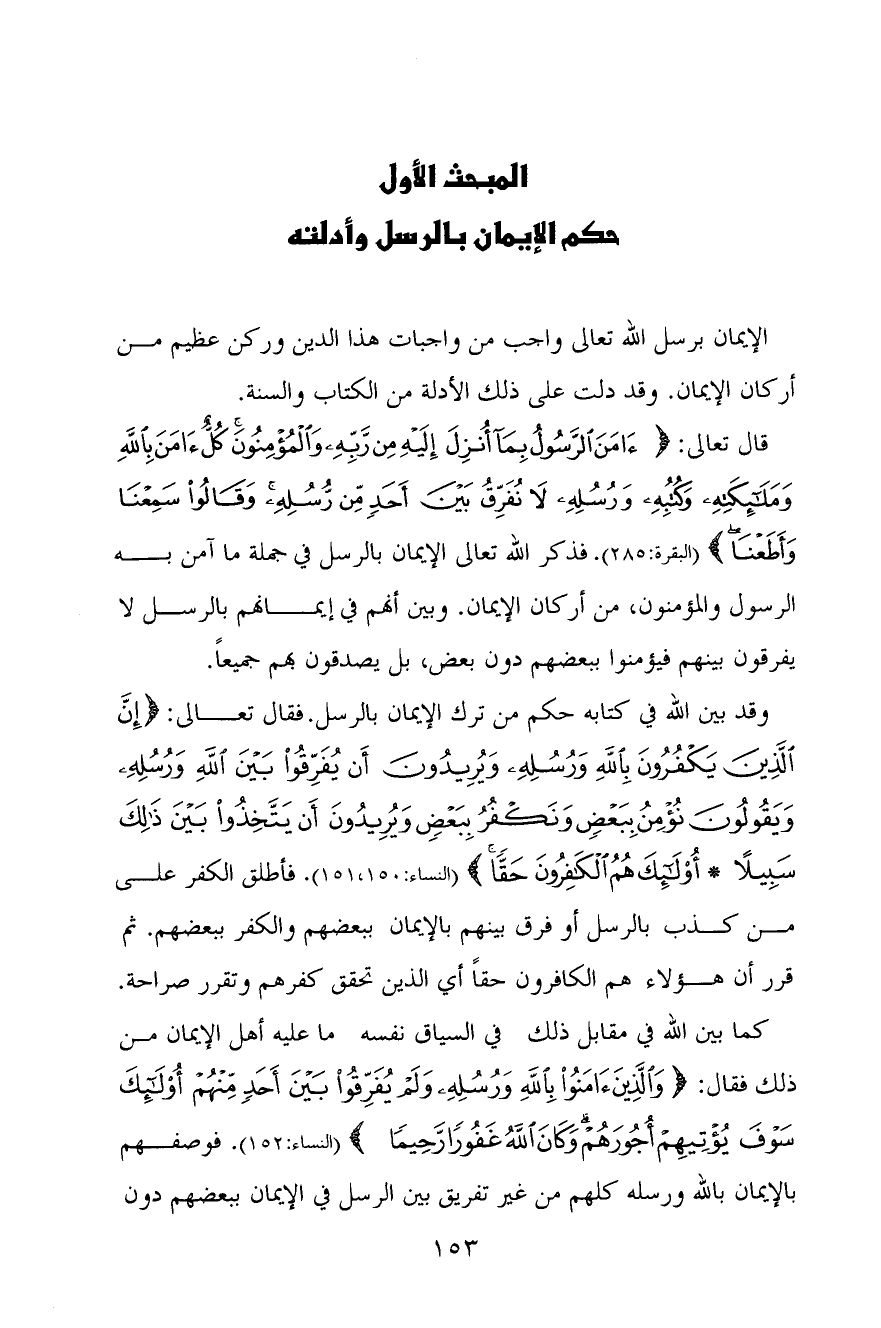 المبحث الأول
حكم الإيمان بالرسل وأدلته
الإيمان برسل الله تعالى واجب من واجبات هذا الدين وركن عظيم مــن
أركان الإيمان. وقد دلت على ذلك الأدلة من الكتاب والسنة.
قال تعالى: ﴿ ءَامَنَ ٱلرَّسُولُ بِمَآ أُنزِلَ إِلَيۡهِ مِن رَّبِّهِۦ وَٱلۡمُؤۡمِنُونَۚ كُلٌّ ءَامَنَ بِٱللَّهِ
وَمَلَٰٓئِكَتِهِۦ وَكُتُبِهِۦ وَرُسُلِهِۦ لَا نُفَرِّقُ بَيۡنَ أَحَدٖ مِّن رُّسُلِهِۦۚ وَقَالُواْ سَمِعۡنَا
وَأَطَعۡنَاۖ ﴾ (البقرة:٢٨٥). فذكر الله تعالى الإيمان بالرسل في جملة ما آمن بــــه
الرسول والمؤمنون، من أركان الإيمان. وبين أنهم في إيمــــانهم بالرســـل لا
يفرقون بينهم فيؤمنوا ببعضهم دون بعض، بل يصدقون بهم جميعاً.
وقد بين الله في كتابه حكم من ترك الإيمان بالرسل.فقال تعــــالى: ﴿إِنَّ
ٱلَّذِينَ يَكۡفُرُونَ بِٱللَّهِ وَرُسُلِهِۦ وَيُرِيدُونَ أَن يُفَرِّقُواْ بَيۡنَ ٱللَّهِ وَرُسُلِهِۦ
وَيَقُولُونَ نُؤۡمِنُ بِبَعۡضٖ وَنَكۡفُرُ بِبَعۡضٖ وَيُرِيدُونَ أَن يَتَّخِذُواْ بَيۡنَ ذَٰلِكَ
سَبِيلًا * أُوْلَٰٓئِكَ هُمُ ٱلۡكَٰفِرُونَ حَقّٗاۚ ﴾ (النساء:١٥٠،١٥١). فأطلق الكفر علــى
مــن كــذب بالرسل أو فرق بينهم بالإيمان ببعضهم والكفر ببعضهم. ثم
قرر أن هـــؤلاء هم الكافرون حقاً أي الذين تحقق كفرهم وتقرر صراحة.
كما بين الله في مقابل ذلك في السياق نفسه ما عليه أهل الإيمان مــن
ذلك فقال: ﴿ وَٱلَّذِينَ ءَامَنُواْ بِٱللَّهِ وَرُسُلِهِۦ وَلَمۡ يُفَرِّقُواْ بَيۡنَ أَحَدٖ مِّنۡهُمۡ أُوْلَٰٓئِكَ
سَوۡفَ يُؤۡتِيهِمۡ أُجُورَهُمۡۗ وَكَانَ ٱللَّهُ غَفُورٗا رَّحِيمٗا ﴾ (النساء:١٥٢). فوصفـــهم
بالإيمان بالله ورسله كلهم من غير تفريق بين الرسل في الإيمان ببعضهم دون
١٥٣